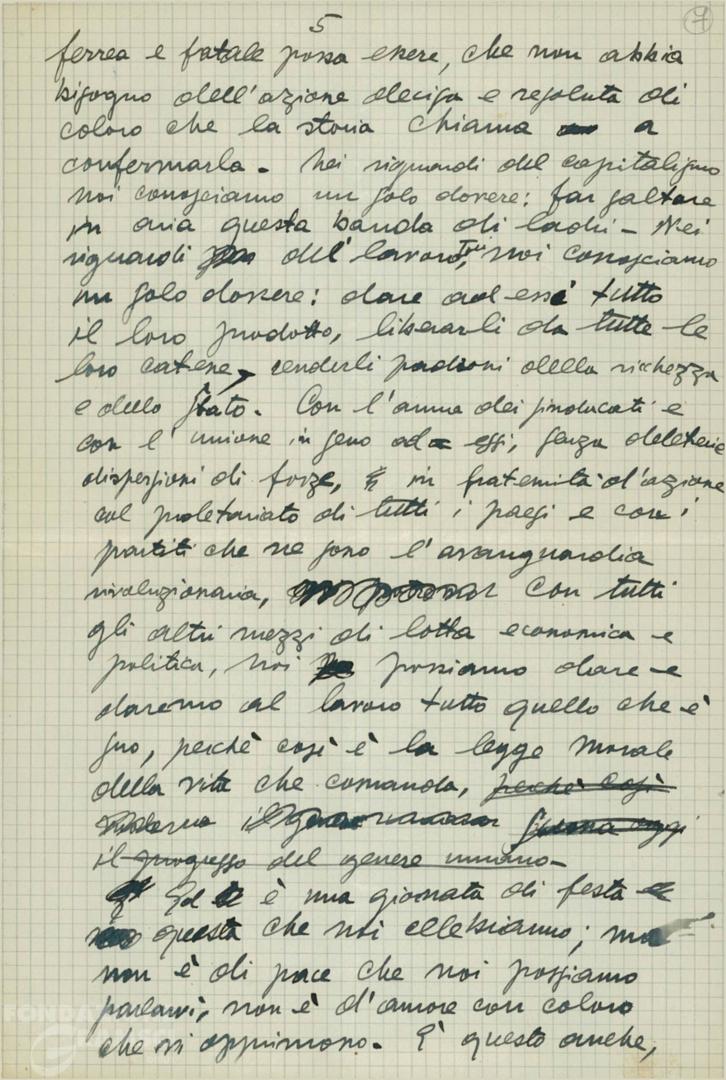 5
7
ferrea e fatale possa essere, che non abbia
bisogno dell'azione decisa e resoluta di
coloro che la storia chiama a
confermarla. Nei riguardi del capitalismo
noi conosciamo un solo dovere: far saltare
in aria questa banda di ladri – Nei
riguardi del lavoratori, noi conosciamo
un solo dovere: dare ad essi tutto
il loro prodotto, liberarli da tutte le
loro catene, renderli padroni della ricchezza
e dello Stato. Con l'arma dei sindacati e
con l'unione in seno ad essi, senza deleterie
dispersioni di forze, in fraternità d'azione
col proletariato di tutti i paesi e con i
partiti che ne sono l'avanguardia
rivoluzionaria, con tutti
gli altri mezzi di lotta economica e
politica, noi possiamo dare e
daremo al lavoro tutto quello che è
suo, perchè così è la legge morale
della vita che comanda, perchè così
il genere suona oggi
il progresso del genere umano –
Ed è una giornata di festa
questa che noi celebriamo; ma
non è di pace che noi possiamo
parlarvi, non è d'amore con coloro
che vi opprimono. È questo anche,
FONDA